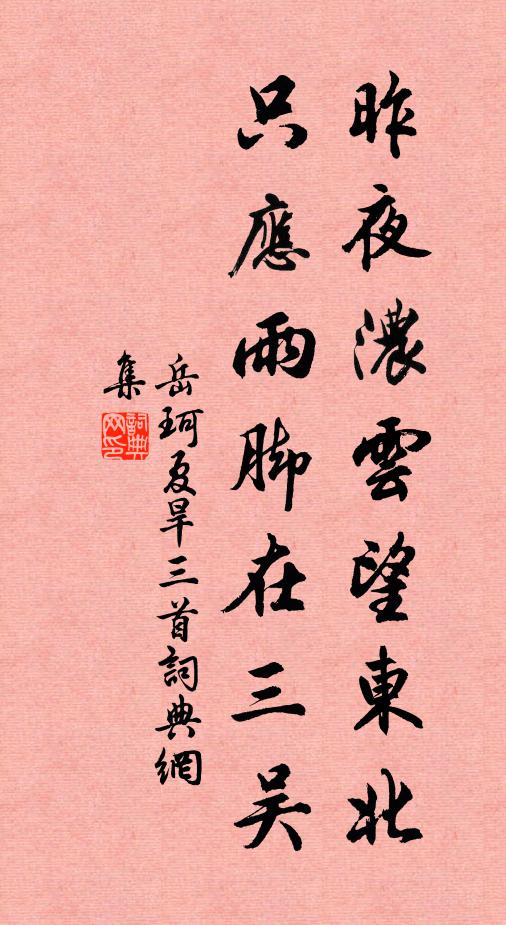 昨夜濃雲望東北
只應雨脚在三吳
岳珂夏旱三首詞典網
集
詞典網印